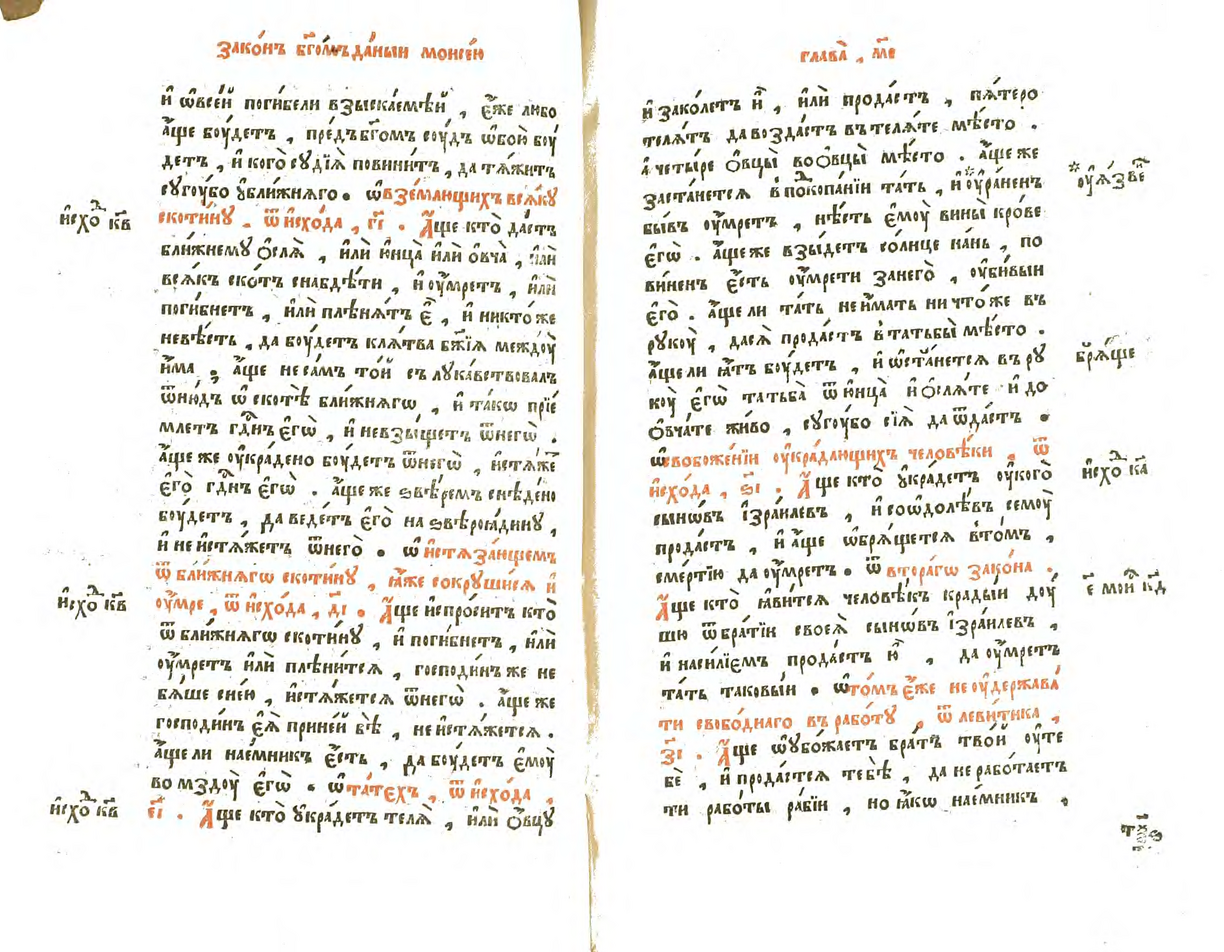 Зако́нъ бг҃омъ да́ныи моисе́ю
и҆ ѡ҆всеи҆ погибели взыскаемѣй , є҆́же либо
а҆́ще боу́детъ , пре́дъ бг҃омъ соу́дъ ѡ҆бою̀ боу́
детъ , и҆ кого̀ судїѧ̀ повини́тъ , да тѧ́житъ
сугоу́бо ᲂу҆бли́жнѧго . ѡ҆взе́млющихъ всѧ́ку
исхо́ кв
скоти́ну . ѿ и҆схо́да , г҃і . А҆́ще кто̀ да́стъ
бли́жнему ѻ҆слѧ̀ , и҆лѝ ю҆нца̀ и҆лѝ ѻ҆вча̀ , и҆лѝ
всѧ́къ ско́тъ снабдѣ́ти , и҆ ᲂу҆́мретъ , и҆лѝ
поги́бнетъ , и҆лѝ плѣнѧ́тъ є҆̀ , и҆ никто́ же
невѣ́сть , да боу́детъ клѧ́тва бж҃їѧ междоу̀
и҆́ма , а҆́ще не са́мъ то́й съ лꙋка́вствовалъ
ѿню́дъ ѡ҆ ско́тѣ бли́жнѧгѡ , и҆ та́кѡ прїе́
млетъ гд҃нъ є҆гѡ̀ , и҆ невзы́щетъ ѿнегѡ̀ .
а҆́ще же ᲂу҆кра́дено боу́детъ ѿнегѡ̀ , и҆стѧ́же
є҆гѡ̀ гд҃нъ є҆гѡ̀ . а҆́ще же ѕвѣ́ремъ снѣ́дено
боу́детъ , да веде́тъ є҆го̀ на ѕвѣроꙗ́дину ,
и҆ не и҆стѧ́жетъ ѿнего̀ . ѡ҆ и҆стѧза́ющемъ
ѿ бли́жнѧгѡ скоти́ну , ꙗ҆́же сокруши́сѧ и҆
исхо́ кв
ᲂу҆́мре , ѿ и҆схо́да , д҃і . А҆́ще и҆спро́ситъ кто̀
ѿ бли́жнѧгѡ скоти́ну , и҆ поги́бнетъ , и҆лѝ
ᲂу҆́мретъ и҆лѝ плѣни́тсѧ , господи́нъ же не
бѧ́ше с нею́ , и҆стѧ́жетсѧ ѿнегѡ̀ . а҆́ще же
господи́нъ є҆ѧ̀ при не́й бѣ̀ , не и҆стѧ́жетсѧ .
а҆́ще ли нае́мникъ є҆́сть , да боу́детъ є҆моу̀
во мздоу̀ є҆гѡ̀ . ѡ҆ та́техъ , ѿ и҆схо́да ,
исхо́ кв
є҃і . А҆́ще кто̀ ᲂу҆кра́детъ телѧ̀ , и҆лѝ ѻ҆вцу̀
глава̀ , м҃е
и҆ зако́летъ и҆̀ , и҆лѝ прода́стъ , пѧ́теро
телѧ́тъ да возда́стъ въ телѧ́те мѣ́сто .
а҆ четы́ре ѻ҆́вцы во ѻ҆вцы̀ мѣ́сто . а҆́ще же
заста́нетсѧ в подкопа́нїи та́ть , и҆ *ᲂу҆ра́ненъ
*ᲂу҆ѧ́звѐ
бы́въ ᲂу҆́мретъ , нѣ́сть є҆моу̀ вины̀ кро́ве
є҆гѡ̀ . а҆́ще же взы́детъ со́лнце на́нь , по
ви́ненъ є҆́сть ᲂу҆мре́ти за него̀ , ᲂу҆би́выи
є҆го̀ . а҆́ще ли та́ть не и҆́мать ни что́ же въ
рукоу̀ , да сѧ̀ прода́стъ в татьбы̀ мѣ́сто .
а҆́ще ли ꙗ҆́тъ боу́детъ , и҆ ѡ҆ста́нетсѧ въ ру
бря́ще
коу̀ є҆гѡ̀ татьба̀ ѿ ю҆нца̀ и҆ ѻ҆слѧ́те и҆ до
ѻ҆вча́те жи́во , сугоу́бо сїѧ̀ да ѿда́стъ .
ѡ҆свобоже́нїи ᲂу҆кра́дающихъ человѣ́ки , ѿ
исхо́ ка
и҆схо́да , ѕ҃і . А҆́ще кто̀ ᲂу҆кра́детъ ᲂу҆кого̀
сынѡ́въ і҆зра́илевъ , и҆ соѡ҆долѣ́въ семоу̀
прода́стъ , и҆ а҆́ще ѡ҆брѧ́щетсѧ в то́мъ ,
сме́ртїю да ᲂу҆́мретъ . ѿ втора́гѡ зако́на .
є҃ мои кд
А҆́ще кто̀ ꙗ҆ви́тсѧ человѣ́къ крады́и доу́
шю ѿ бра́тїи своеѧ̀ сынѡ́въ і҆зра́илевъ ,
и҆ наси́лїемъ прода́стъ ю҆̀ , да ᲂу҆́мретъ
та́ть таковы́и . ѡ҆ то́мъ є҆́же не ᲂу҆держава́
ти свобо́днаго въ рабо́ту , ѿ леви́тика ,
з҃і . А҆́ще ѡ҆убо́жаетъ бра́тъ тво́й ᲂу҆те
бѐ , и҆ прода́стсѧ тебѣ̀ , да не рабо́таетъ
ти рабо́ты ра́бїи , но ꙗ҆́кѡ нае́мникъ .